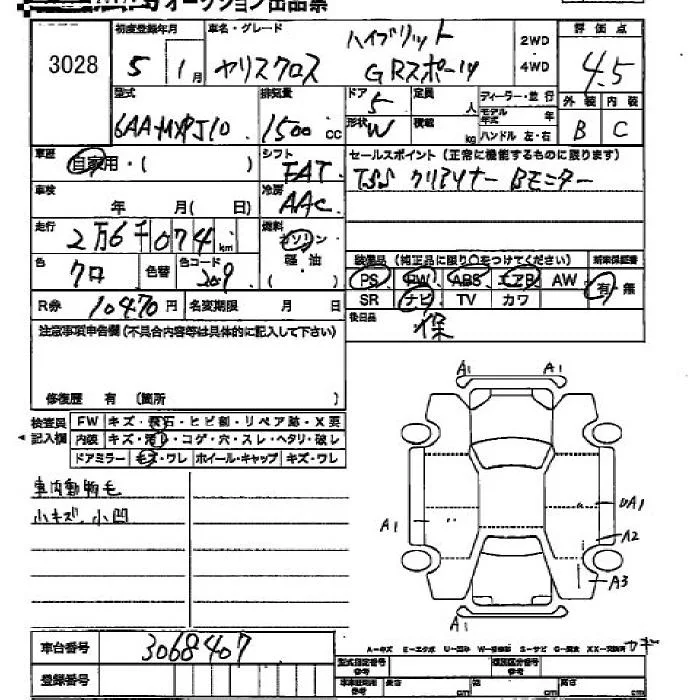 オークション出品票
3028
初度登録年月
5 1月
車名・グレード
ハイブリット
ヤリスクロス GRスポーツ
2WD
4WD
評価点
4.5
型式
6AA-MXPJ10
排気量
1500 cc
ドア
5
定員
人
形状
W
積載
kg
ディーラー・並行
モデル年式 年
ハンドル 左・右
外装 内装
B C
車歴
自家用・( )
シフト
FAT
セールスポイント(正常に機能するものに限ります)
TSS クリアソナー Bモニター
車検
年 月( 日)
冷房
AAC
走行
2万6千074km
燃料
ガソリン
軽油
( )
色
クロ
色替
色コード
209
装備品(純正品に限り○をつけてください)
新車保証書
PS PW ABS エアB AW
SR ナビ TV カワ
有・無
R券 10470円
名変期限 月 日
後日品
保
注意事項申告欄(不具合内容等は具体的に記入して下さい)
修復歴 有 (箇所 )
検査員記入欄
FW キズ・飛石・ヒビ割・リペア跡・X要
内装 キズ・汚レ・コゲ・穴・スレ・ヘタリ・破レ
ドアミラー キズ・ワレ ホイール・キャップ キズ・ワレ
車内動物毛
小キズ、小凹
A1 A1
A1
UA1
A2
A3
A1
車台番号 3068407
登録番号
A-キズ E-エクボ U-凹み W-補修跡 S-サビ C-腐食 XX-交換済
カギ
型式指定番号 類別区分番号
長さ cm 幅 cm 高さ cm